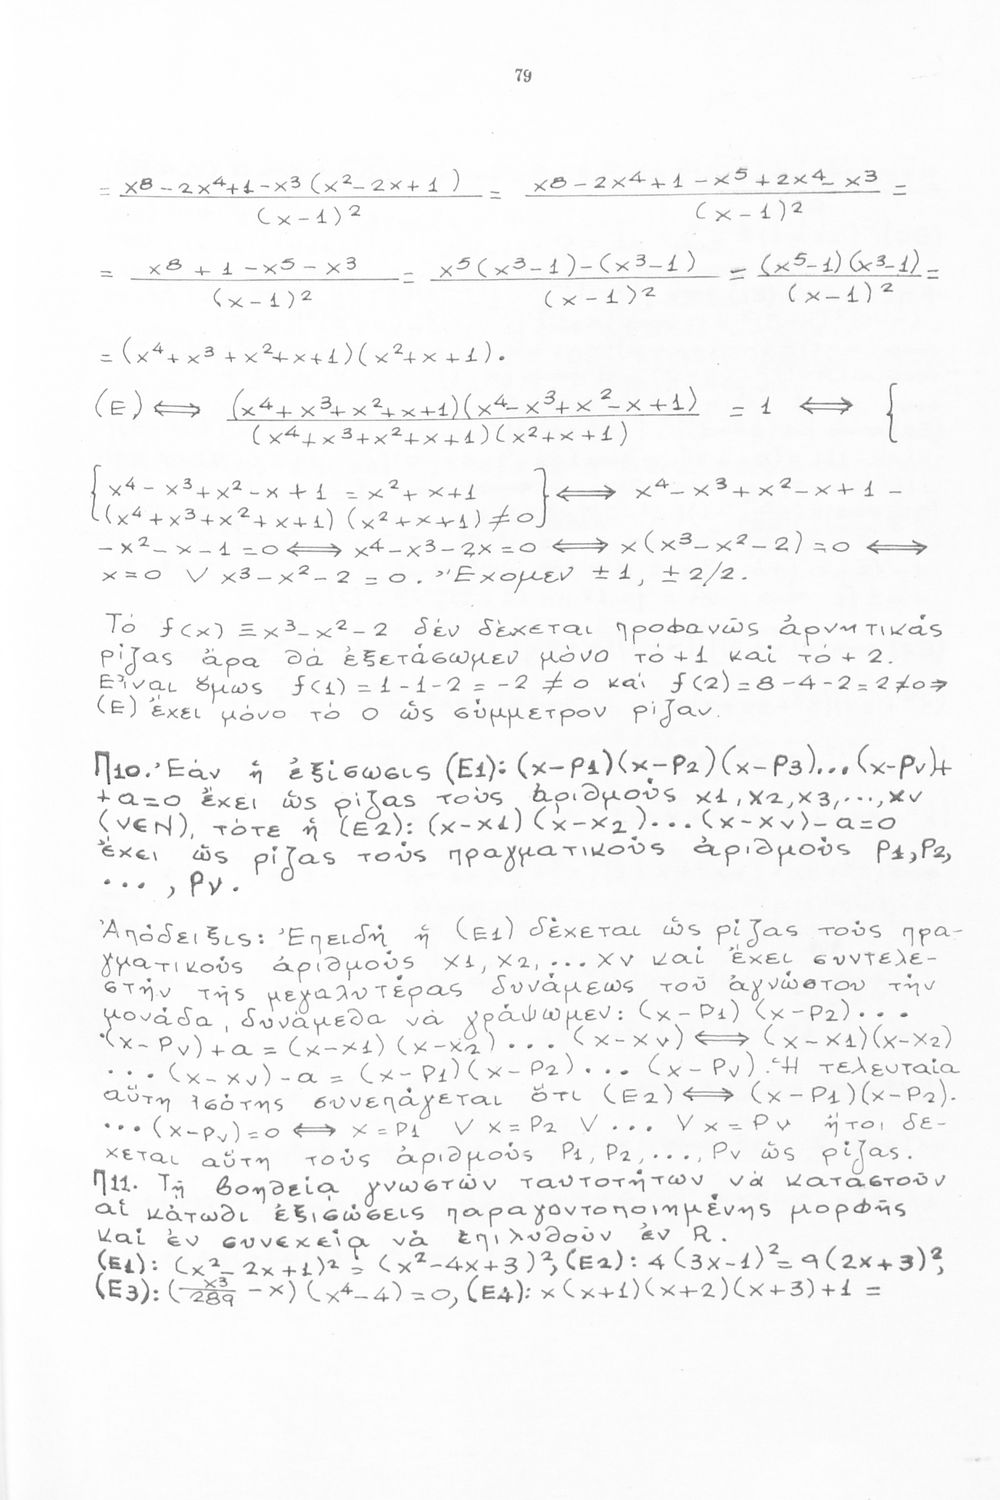 79
= x⁸-2x⁴+1-x³(x²-2x+1) / (x-1)² = x⁸-2x⁴+1-x⁵+2x⁴-x³ / (x-1)² =
= x⁸+1-x⁵-x³ / (x-1)² = x⁵(x³-1)-(x³-1) / (x-1)² = (x⁵-1)(x³-1) / (x-1)² =
=(x⁴+x³+x²+x+1)(x²+x+1).
(Ε) ⟺ (x⁴+x³+x²+x+1)(x⁴-x³+x²-x+1) / (x⁴+x³+x²+x+1)(x²+x+1) = 1 ⟺ {
{x⁴-x³+x²-x+1 = x²+x+1
(x⁴+x³+x²+x+1)(x²+x+1)≠0} ⟺ x⁴-x³+x²-x+1-
-x²-x-1=0 ⟺ x⁴-x³-2x=0 ⟺ x(x³-x²-2)=0 ⟺
x=0 ∨ x³-x²-2=0. Ἔχομεν ±1, ±2/2.
Τό f(x)≡x³-x²-2 δέν δέχεται προφανῶς ἀρνητικάς
ρίζας ἄρα θά ἐξετάσωμεν μόνο τό +1 καί τό +2.
Εἶναι ὅμως f(1)=1-1-2=-2≠0 καί f(2)=8-4-2=2≠0⇒
(Ε) ἔχει μόνο τό 0 ὡς σύμμετρον ρίζαν.
Π10. Ἐάν ἡ ἐξίσωσις (Ε1): (x-ρ1)(x-ρ2)(x-ρ3)...(x-ρν)+
+α=0 ἔχει ὡς ρίζας τούς ἀριθμούς x1,x2,x3,...,xν
(ν∈Ν), τότε ἡ (Ε2): (x-x1)(x-x2)...(x-xν)-α=0
ἔχει ὡς ρίζας τούς πραγματικούς ἀριθμούς ρ1,ρ2,
..., ρν.
Ἀπόδειξις: Ἐπειδή ἡ (Ε1) δέχεται ὡς ρίζας τούς πρα-
γματικούς ἀριθμούς x1,x2,...xν καί ἔχει συντελε-
στήν τῆς μεγαλυτέρας δυνάμεως τοῦ ἀγνώστου τήν
μονάδα, δυνάμεθα νά γράψωμεν: (x-ρ1)(x-ρ2)...
.(x-ρν)+α=(x-x1)(x-x2)...(x-xν) ⟺ (x-x1)(x-x2)
...(x-xν)-α=(x-ρ1)(x-ρ2)...(x-ρν). Ἡ τελευταία
αὕτη ἰσότης συνεπάγεται ὅτι (Ε2) ⟺ (x-ρ1)(x-ρ2).
...(x-ρν)=0 ⟺ x=ρ1 ∨ x=ρ2 ∨ ... ∨ x=ρν ἤτοι δέ-
χεται αὕτη τούς ἀριθμούς ρ1,ρ2,...,ρν ὡς ρίζας.
Π11. Τῇ βοηθείᾳ γνωστῶν ταυτοτήτων νά καταστοῦν
αἱ κάτωθι ἐξισώσεις παραγοντοποιημένης μορφῆς
καί ἐν συνεχείᾳ νά ἐπιλυθοῦν ἐν R.
(Ε1): (x²-2x+1)² = (x²-4x+3)², (Ε2): 4(3x-1)²=9(2x+3)²,
(Ε3): (x³/289 -x)(x⁴-4)=0, (Ε4): x(x+1)(x+2)(x+3)+1 =